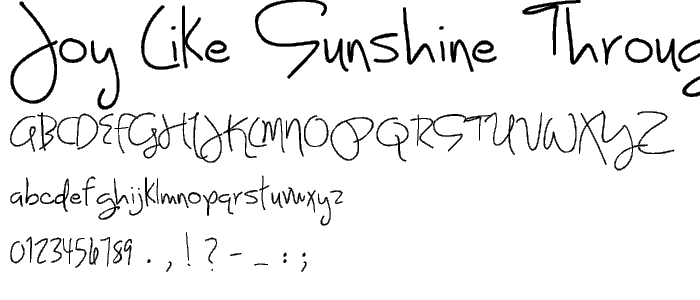 Joy Like Sunshine Throug
ABCDEFGHIJKLMNOPQRSTUVWXYZ
abcdefghijklmnopqrstuvwxyz
0123456789 . , ! ? - _ : ;